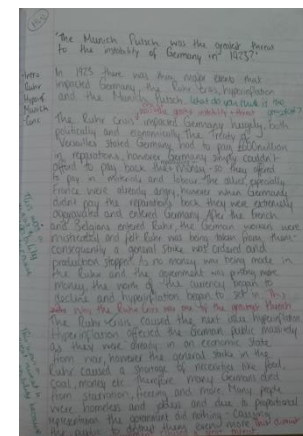 "The Munich Putsch was the greatest threat
to the instability of Germany in 1923?"
Intro
Ruhr
Hyperinf
Munich
Conc
In 1923 there was three major events that
impacted Germany, the Ruhr Crisis, hyperinflation
and the Munich Putsch. What do you think is the
greatest
The Ruhr Crisis impacted Germany hugely, both
politically and economically. The Treaty of
Versailles stated Germany had to pay
in reparations, however, Germany simply couldn't
afford to pay back that money - so they offered
to pay in materials and labour. The allies, especially
France were already angry, however when Germany
didn't pay the reparations back they were extremely
aggravated and entered Germany. After the French
and Belgians entered Ruhr, the German workers were
and felt Ruhr was being taken from them
consequently a general strike was ordered and
production stopped. As no money was being made in
the Ruhr and the government was printing more
money, the worth of the currency began to
decline and hyperinflation began to set in. This
was why the Ruhr Crisis was one of the greatest threats
The Ruhr Crisis caused the next crisis hyperinflation
Hyperinflation affected the German public massively
as they were already in an economic state
from war, however the general strike in the
Ruhr caused a shortage of necessities like food,
coal, money etc therefore many Germans died
from starvation, freezing and more. Many people
were homeless and and due to proportional
representation the government did nothing - causing
the public to distrust them even more. This is